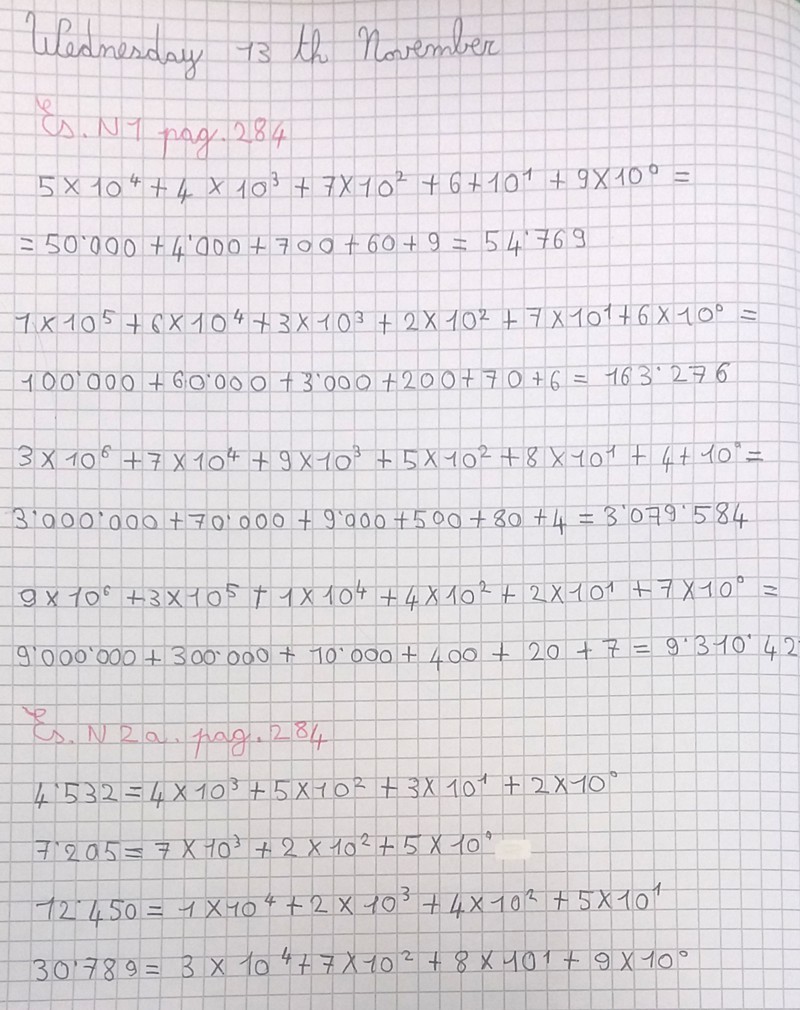 Wednesday 13 th November
Es. N 1 pag. 284
5 × 10⁴ + 4 × 10³ + 7 × 10² + 6 + 10¹ + 9 × 10⁰ =
= 50˙000 + 4˙000 + 700 + 60 + 9 = 54˙769
1 × 10⁵ + 6 × 10⁴ + 3 × 10³ + 2 × 10² + 7 × 10¹ + 6 × 10⁰ =
100˙000 + 60˙000 + 3˙000 + 200 + 70 + 6 = 163˙276
3 × 10⁶ + 7 × 10⁴ + 9 × 10³ + 5 × 10² + 8 × 10¹ + 4 + 10⁰ =
3˙000˙000 + 70˙000 + 9˙000 + 500 + 80 + 4 = 3˙079˙584
9 × 10⁶ + 3 × 10⁵ + 1 × 10⁴ + 4 × 10² + 2 × 10¹ + 7 × 10⁰ =
9˙000˙000 + 300˙000 + 10˙000 + 400 + 20 + 7 = 9˙310˙42
Es. N 2a. pag. 284
4˙532 = 4 × 10³ + 5 × 10² + 3 × 10¹ + 2 × 10⁰
7˙205 = 7 × 10³ + 2 × 10² + 5 × 10⁰
12˙450 = 1 × 10⁴ + 2 × 10³ + 4 × 10² + 5 × 10¹
30˙789 = 3 × 10⁴ + 7 × 10² + 8 × 10¹ + 9 × 10⁰